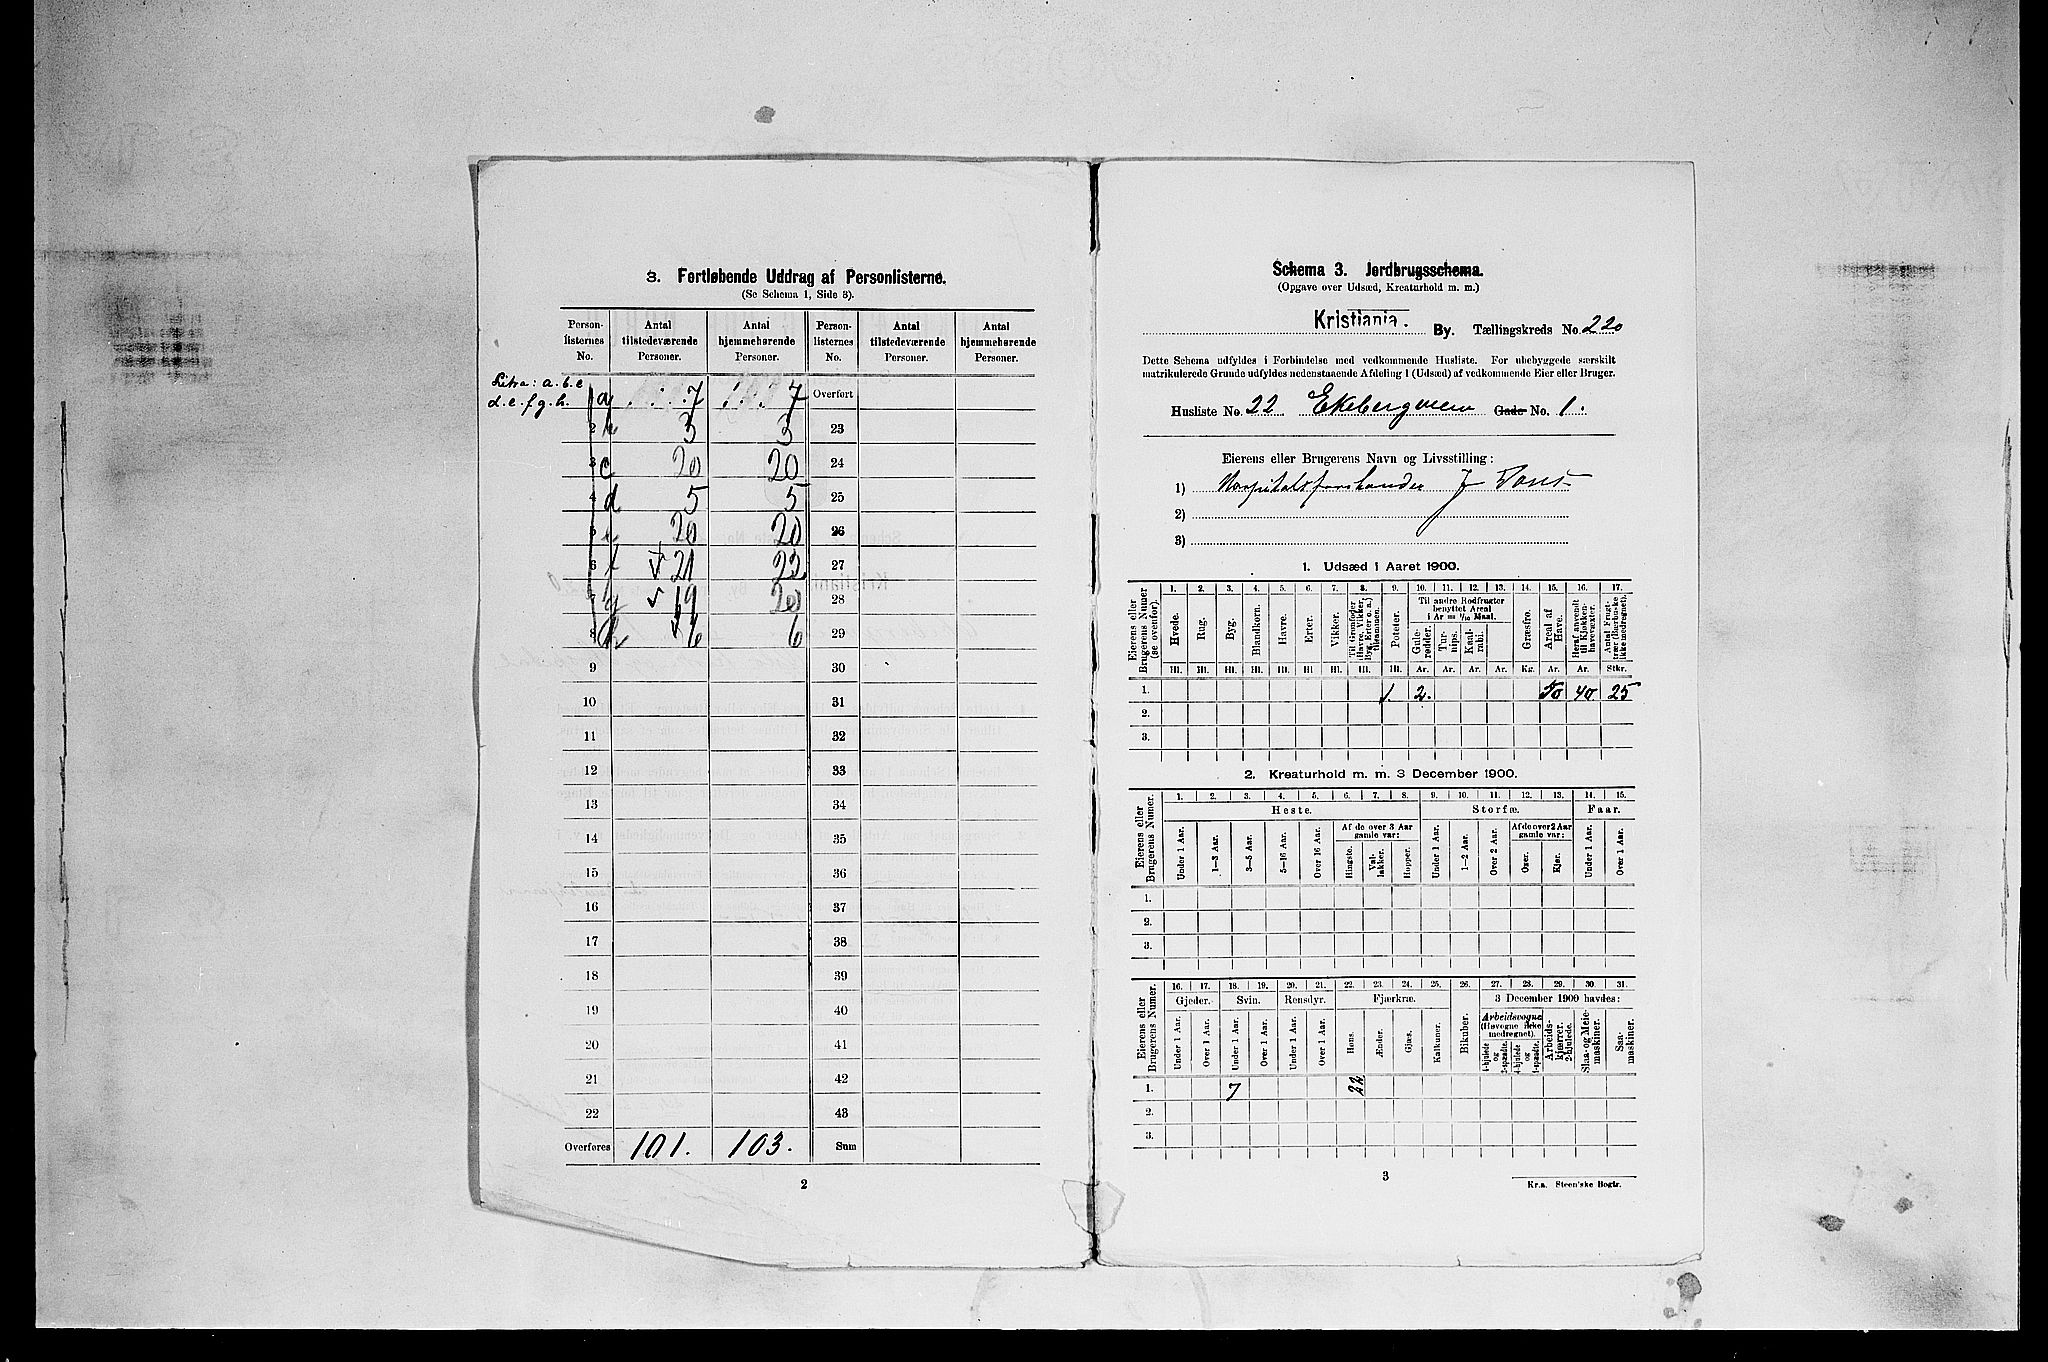 3. Fortløbende Uddrag af Personlisterne.
(Se Schema 1, Side 3).
Person-listernes No. | Antal tilstedeværende Personer. | Antal hjemmehørende Personer. | Person-listernes No. | Antal tilstedeværende Personer. | Antal hjemmehørende Personer.
Litra: a. b. c
d. e. f. g. h.
1 a 7 7 Overført
2 3 3 23
3 c 20 20 24
4 d 5 5 25
5 e 20 20 26
6 f 21 22 27
7 g 19 20 28
8 h 6 6 29
9 30
10 31
11 32
12 33
13 34
14 35
15 36
16 37
17 38
18 39
19 40
20 41
21 42
22 43
Overføres 101. 103. Sum
2
Schema 3. Jordbrugsschema.
(Opgave over Udsæd, Kreaturhold m. m.)
Kristiania. By. Tællingskreds No. 220
Dette Schema udfyldes i Forbindelse med vedkommende Husliste. For ubebyggede særskilt
matrikulerede Grunde udfyldes nedenstaaende Afdeling 1 (Udsæd) af vedkommende Eier eller Bruger.
Husliste No. 22 Ekebergveien Gade No. 1.
Eierens eller Brugerens Navn og Livsstilling:
1) Hospitalsforstander J
2)
3)
1. Udsæd i Aaret 1900.
Eierens eller Brugerens Numer (se ovenfor).
1. 2. 3. 4. 5. 6. 7. 8. 9. 10. 11. 12. 13. 14. 15. 16. 17.
Til andre Rodfrugter benyttet Areal i Ar = 1/10 Maal.
Hvede. Rug. Byg. Blandkorn. Havre. Erter. Vikker. Til Grønfoder (Havre, Vikker, Byg, Erter o. a.) tilsammen. Poteter. Gulerødder. Turnips. Kaalrabi. Græsfrø. Areal af Have. Heraf anvendt til Kjøkkenhavevæxter. Antal Frugttrær (Bærbuske ikke medregnet).
Hl. Hl. Hl. Hl. Hl. Hl. Hl. Hl. Hl. Ar. Ar. Ar. Ar. Kg. Ar. Ar. Stkr.
1. 1. 2. 50 40 25
2.
3.
2. Kreaturhold m. m. 3 December 1900.
Eierens eller Brugerens Numer.
1. 2. 3. 4. 5. 6. 7. 8. 9. 10. 11. 12. 13. 14. 15.
Heste. Storfæ. Faar.
Af de over 3 Aar gamle var: Af de over 2 Aar gamle var:
Under 1 Aar. 1—3 Aar. 3—5 Aar. 5—16 Aar. Over 16 Aar. Hingste. Vallakker. Hopper. Under 1 Aar. 1—2 Aar. Over 2 Aar. Oxer. Kjør. Under 1 Aar. Over 1 Aar.
1.
2.
3.
Eierens eller Brugerens Numer.
16. 17. 18. 19. 20. 21. 22. 23. 24. 25. 26. 27. 28. 29. 30. 31.
Gjeder. Svin. Rensdyr. Fjærkræ. 3 December 1900 havdes:
Arbeidsvogne (Høvogne ikke medregnet).
Under 1 Aar. Over 1 Aar. Under 1 Aar. Over 1 Aar. Under 1 Aar. Over 1 Aar. Høns. Ænder. Gjæs. Kalkuner. Bikuber. 4-hjulede og 2-spændte. 4-hjulede og 1-spændte. Arbeidskjærrer. 2-hjulede. Slaa- og Meiemaskiner. Saamaskiner.
1. 7 22
2.
3.
3
Kr.a. Steen'ske Bogtr.